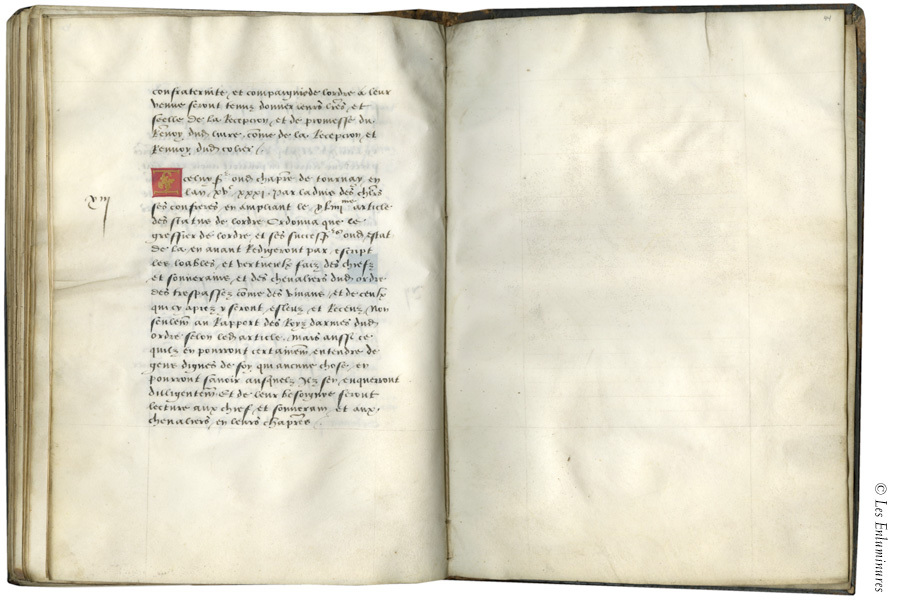 confraternite, et compaignie de lordre a leur
venue seront tenuz donner leurs lres, et
seelle de la Reception, et de promesse du
Renvoy dud livre, come de la Reception, et
Renvoy dud colier.
Icelluy sr oud chapre de tournay, en
lan, xvc xxxi. Par ladvis desd chlrs
ses confreres en ampliant le article
des statuz de lordre Ordonna que le
greffier de lordre, et ses success oud estat
de la en avant Redigeront par escript
les loables, et vertueulx faiz, des chiefz
et souverains, et des chevaliers dud ordre
des trespassez, come des vivans, et de ceulx
qui cy apres y seront, esleuz, et Receuz, Non
seulem au Rapport des Roys darmes dud
ordre selon led article, mais aussi ce
quilz en pourront certainem entendre de
gens dignes de foy qui aucune chose, en
pourront savoir ausquelz Ilz sen, enquerront
diligentem Et de leur besongne seront
lecture aux chief, et souverain, et aux
chevaliers, en leurs chapres
xiii
41
© Les Enluminures